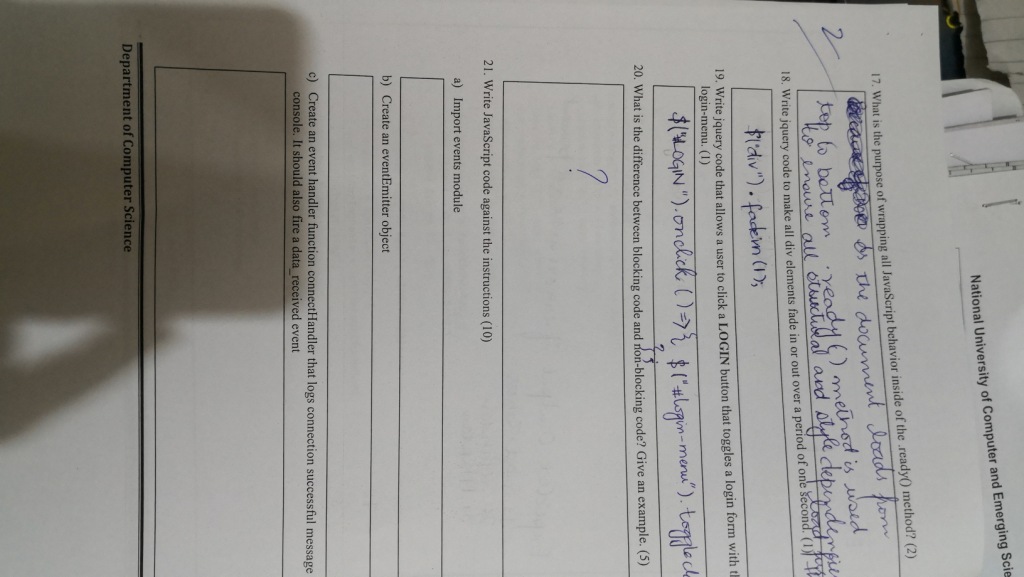 National University of Computer and Emerging Scie
17. What is the purpose of wrapping all JavaScript behavior inside of the .ready() method? (2)
As the document loads from
2
top to bottom .ready() method is used
to ensure all structural and style dependencies
load
18. Write jquery code to make all div elements fade in or out over a period of one second. (1)
$("div").fadein(1);
19. Write jquery code that allows a user to click a LOGIN button that toggles a login form with
login-menu. (1)
$("#LOGIN").onclick()=>{ $("#login-menu").toggle
};
20. What is the difference between blocking code and non-blocking code? Give an example. (5)
?
21. Write JavaScript code against the instructions (10)
a) Import events module
b) Create an eventEmitter object
c) Create an event handler function connectHandler that logs connection successful message
console. It should also fire a data_received event
Department of Computer Science